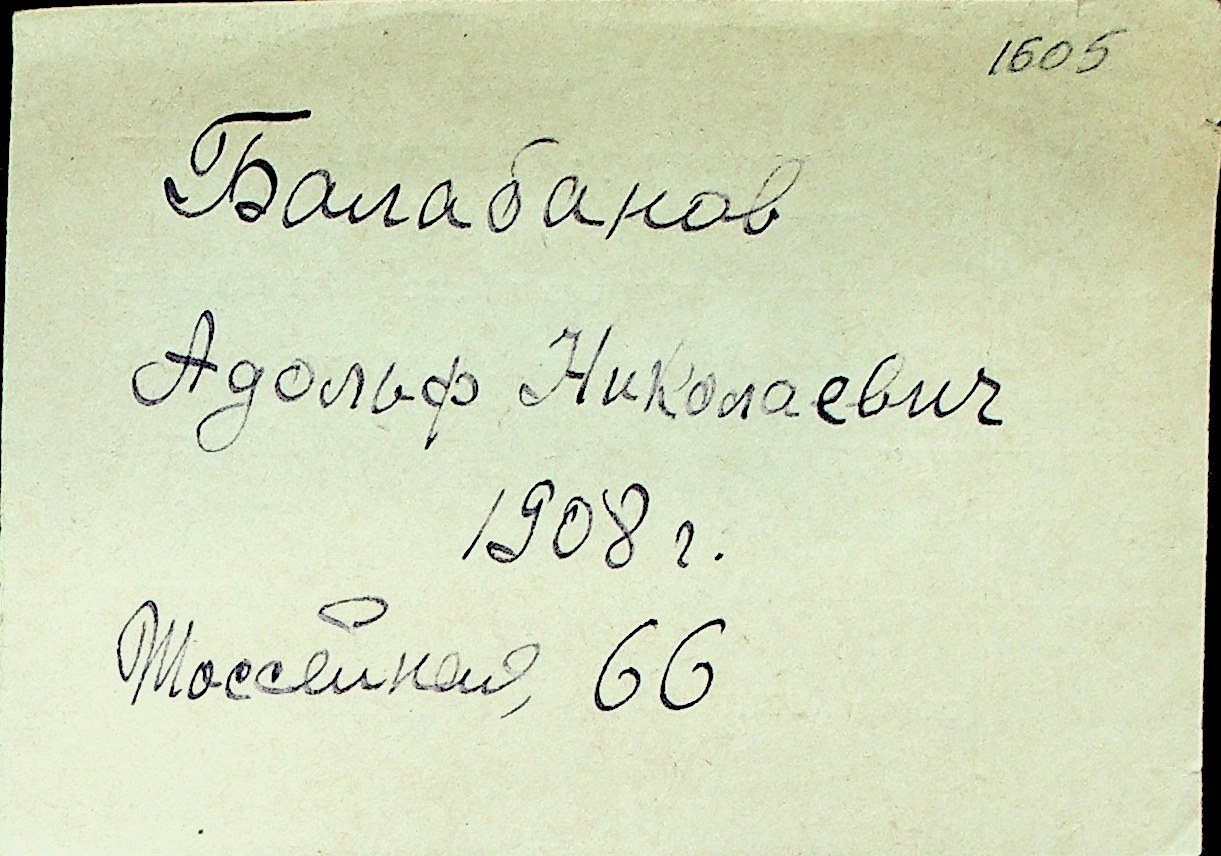 1605
Балабанов
Адольф Николаевич
1908 г.
Шоссейная, 66